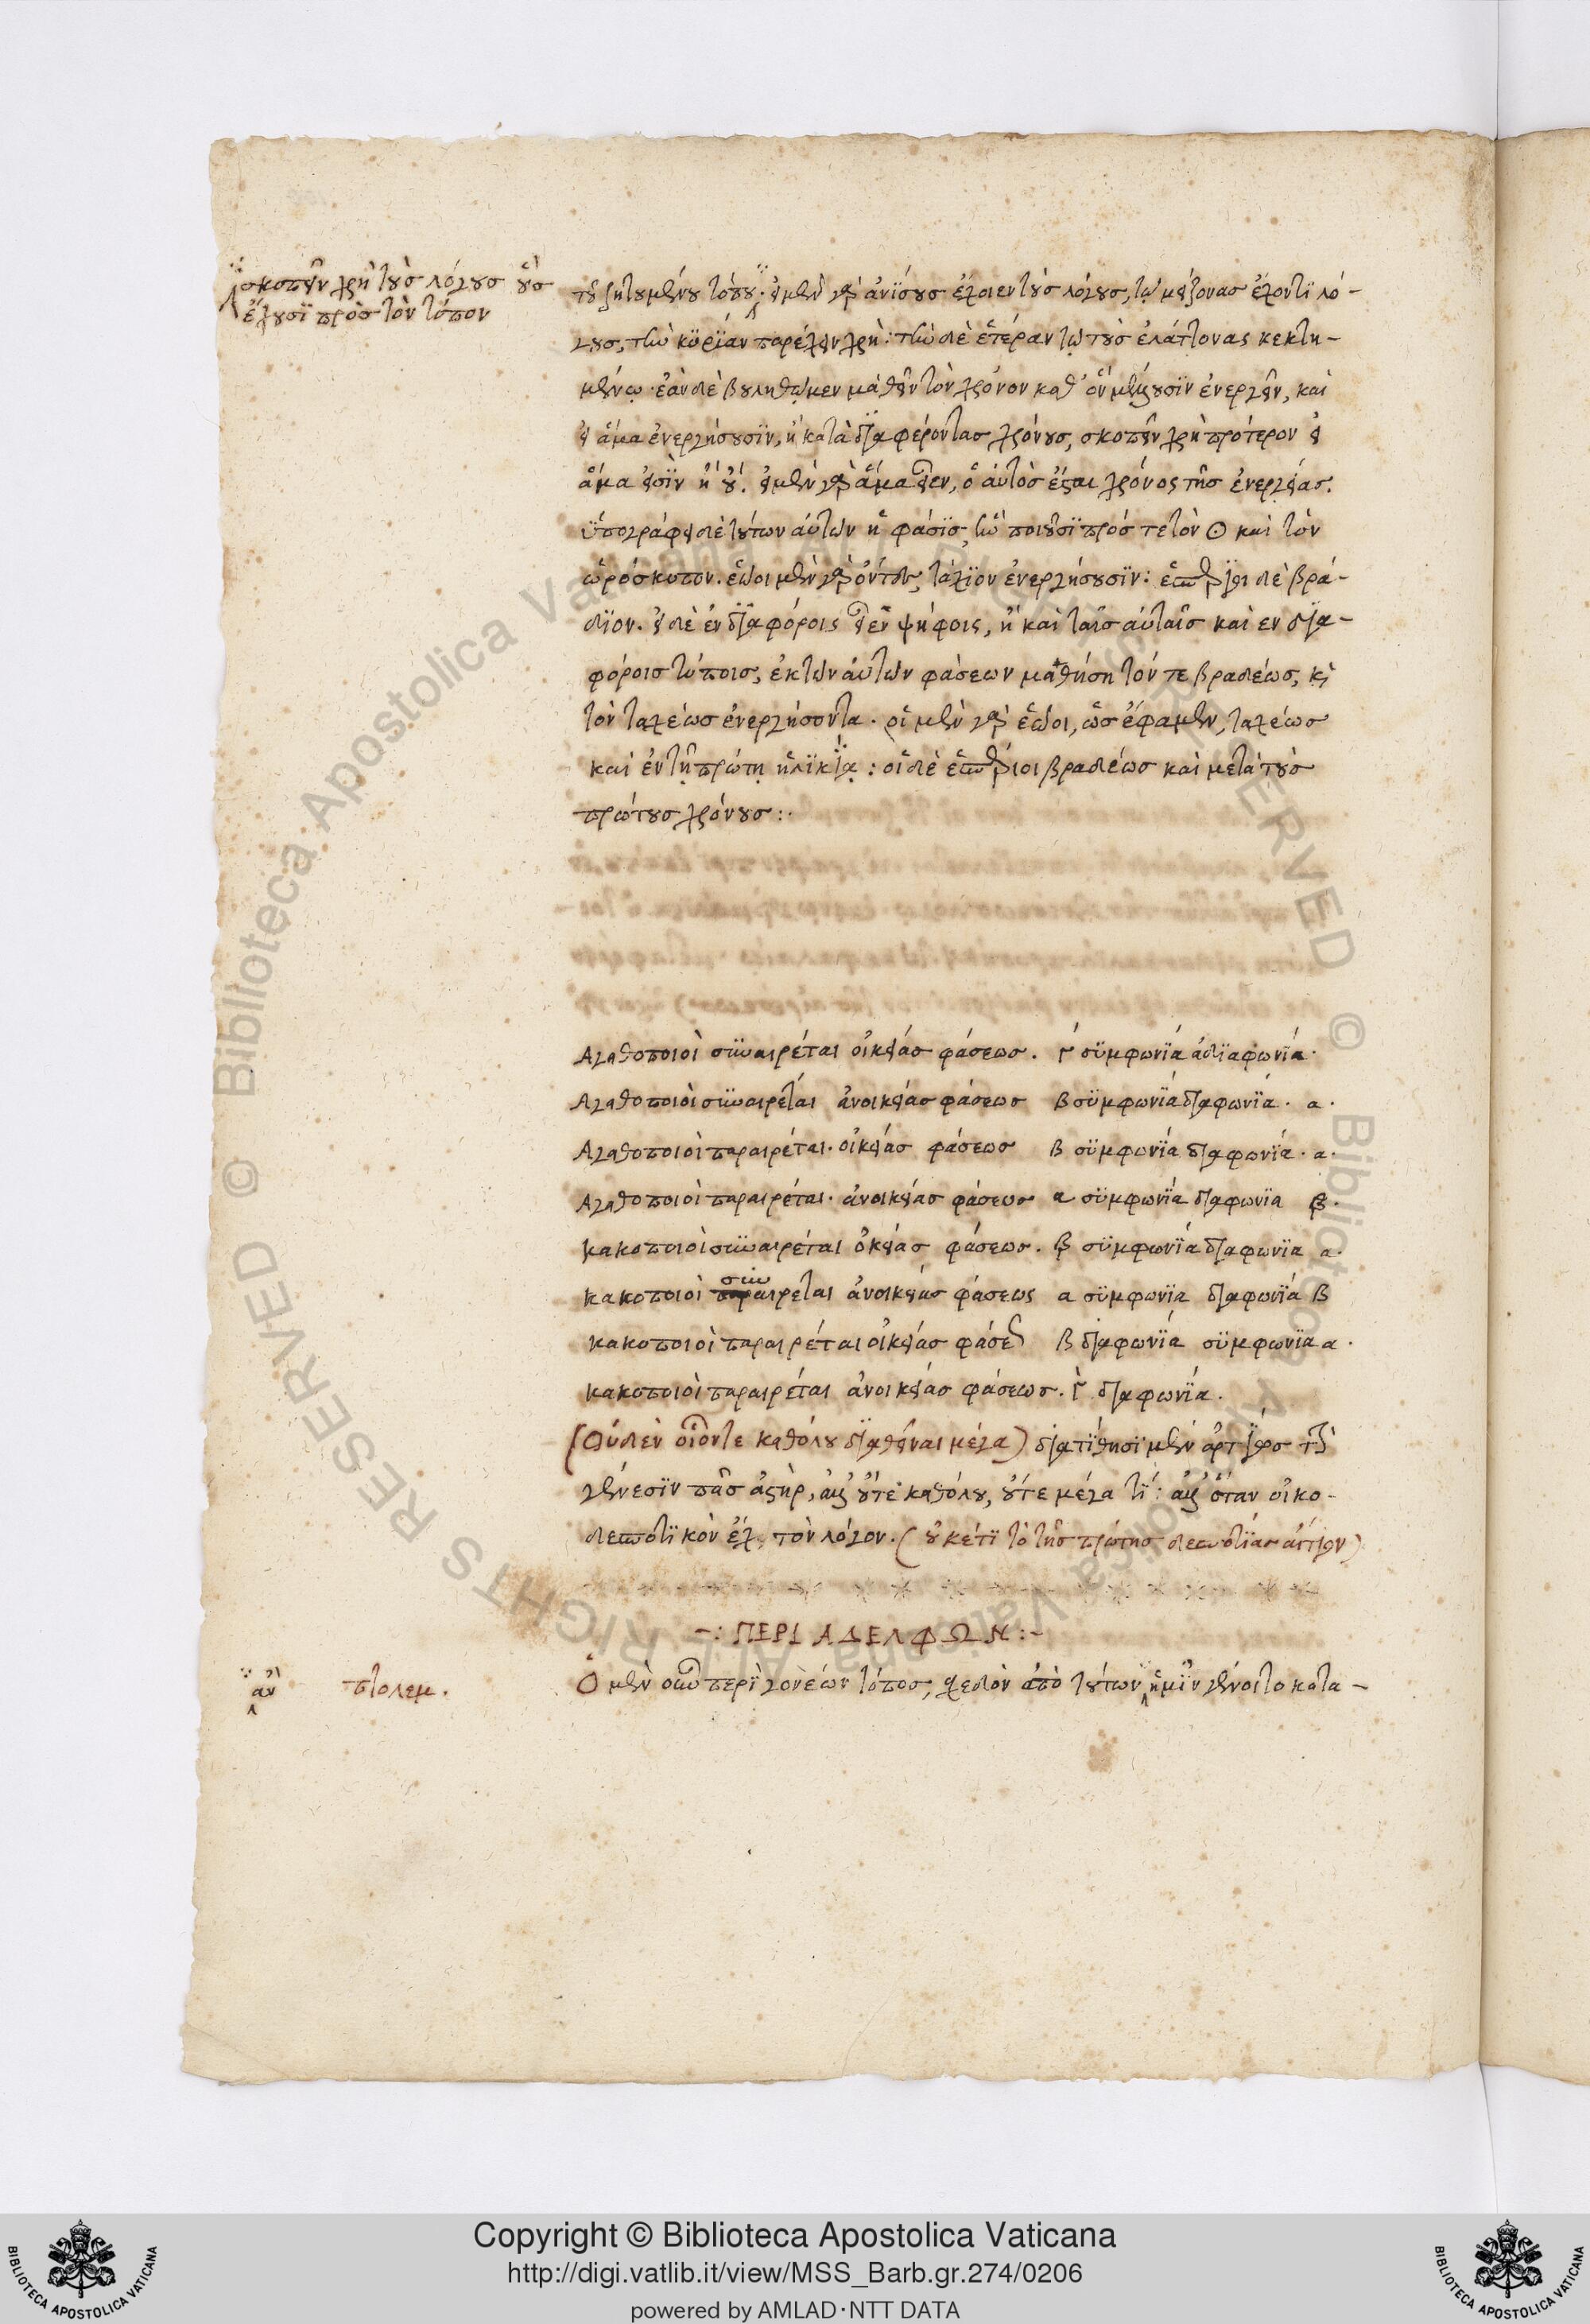 σκοπεῖν χρὴ τοὺς λόγους οὓς
ἔχουσϊ πρὸς τὸν τόπον
τοῦ ζητουμένου τόπου. εἰ μὲν γὰρ ἀνΐσους ἔχοιεν τοὺς λόγους, τῷ μείζονας ἔχοντϊ λό-
γους, τὴν κϋρΐαν παρέχειν χρὴ: τὴν δὲ ἑτέραν τῷ τοὺς ἐλάττονας κεκτη-
μένῳ. ἐὰν δὲ βουληθῶμεν μαθεῖν τὸν χρόνον καθ' ὃν μέλλουσϊν ἐνεργεῖν, καὶ
εἰ ἅμα ἐνεργήσουσϊν, ἢ κατὰ δϊαφέροντας χρόνους, σκοπεῖν χρὴ πρότερον εἰ
ἅμα εἰσῒν ἢ οὔ. εἰ μὲν γὰρ ἅμα εἶεν, ὁ αὐτὸς ἔσται χρόνος τῆς ἐνεργείας.
ὑπογράφει δὲ τούτων αὐτῶν ἡ φάσϊς, ἣν ποιοῦσϊ πρός τε τὸν ☉ καὶ τὸν
ὡρόσκοπον. ἑῷοι μὲν γὰρ ὄντες, τάχϊον ἐνεργήσουσϊν: ἑσπέρϊοι δὲ βρά-
δϊον. εἰ δὲ ἐν δϊαφόροις εἶεν ψήφοις, ἢ καὶ ταῖς αὐταῖς καὶ εν δϊα-
φόροις τόποις, ἐκ τῶν αὐτῶν φάσεων μαθήσῃ τόν τε βραδέως, καὶ
τὸν ταχέως ἐνεργήσοντα. οἱ μὲν γὰρ ἑῷοι, ὡς ἔφαμεν, ταχέως
καὶ ἐν τῇ πρώτῃ ἡλϊκΐᾳ: οἱ δὲ ἑσπέριοι βραδέως καὶ μετὰ τοὺς
πρώτους χρόνους:·
Αγαθοποιοὶ σϋναιρέται οἰκείας φάσεως. γ́ σϋμφωνΐα ἀδϊαφωνΐα·
Αγαθοποιοὶ σϋναιρέται ἀνοικείας φάσεως β σϋμφωνΐα δϊαφωνΐα. α·
Αγαθοποιοὶ παραιρέται. οἰκείας φάσεως β σϋμφωνΐα δϊαφωνΐα. α·
Αγαθοποιοὶ παραιρέται. ἀνοικείας φάσεως α σϋμφωνΐα δϊαφωνϊα β.
κακοποιοὶ σϋναιρέται οἰκείας φάσεως. β σϋμφωνΐα δϊαφωνϊα α·
κακοποιοὶ συναιρεται ἀνοικείας φάσεως α σϋμφωνΐα δϊαφωνΐα β
κακοποιοὶ παραιρέται οἰκείας φάσεως β δϊαφωνΐα σϋμφωνϊα α·
κακοποιοὶ παραιρέται ἀνοικείας φάσεως. γ̀ δϊαφωνΐα.
(Οὐδὲν οἷόν τε καθόλου δϊαθεῖναι μέγα) δϊατΐθησϊ μὲν ἀρτΐως τὴν
γένεσϊν πᾶς ἀστὴρ, ἀλλ' οὔτε καθόλου, οὔτε μέγα τΐ: ἀλλ' ὅταν οἰκο-
δεσποτϊκὸν ἔχῃ τὸν λόγον. (οὐκέτϊ τὸ τῆς πρώτης δεσποτΐας αἴτϊον)
-: ΠΕΡΙ ΑΔΕΛΦΩΝ:-
ἀν̀ πτολεμ.
Ὁ μὲν οὖν περῒ γονέων τόπος, σχεδὸν ἀπὸ τούτων ἡμῖν γένοιτο κατα-
Copyright © Biblioteca Apostolica Vaticana
http://digi.vatlib.it/view/MSS_Barb.gr.274/0206
powered by AMLAD·NTT DATA